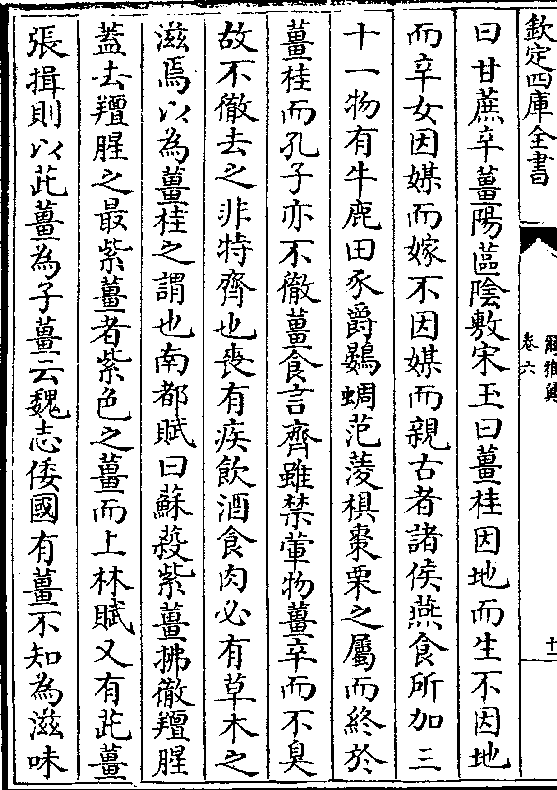 欽定四庫全書
爾雅翼
卷六
十一
曰甘蔗辛薑陽蓲陰敷宋玉曰薑桂因地而生不因地
而辛女因媒而嫁不因媒而親古者諸侯燕食所加三
十一物有牛鹿田豕爵鷃蜩范蔆椇棗栗之屬而終於
薑桂而孔子亦不徹薑食言齊雖禁葷物薑辛而不臭
故不徹去之非特齊也喪有疾飲酒食肉必有草木之
滋焉以為薑桂之謂也南都賦曰蘇蔱紫薑拂徹羶腥
蓋去羶腥之最紫薑者紫色之薑而上林賦又有茈薑
張揖則以茈薑為子薑云魏志倭國有薑不知為滋味